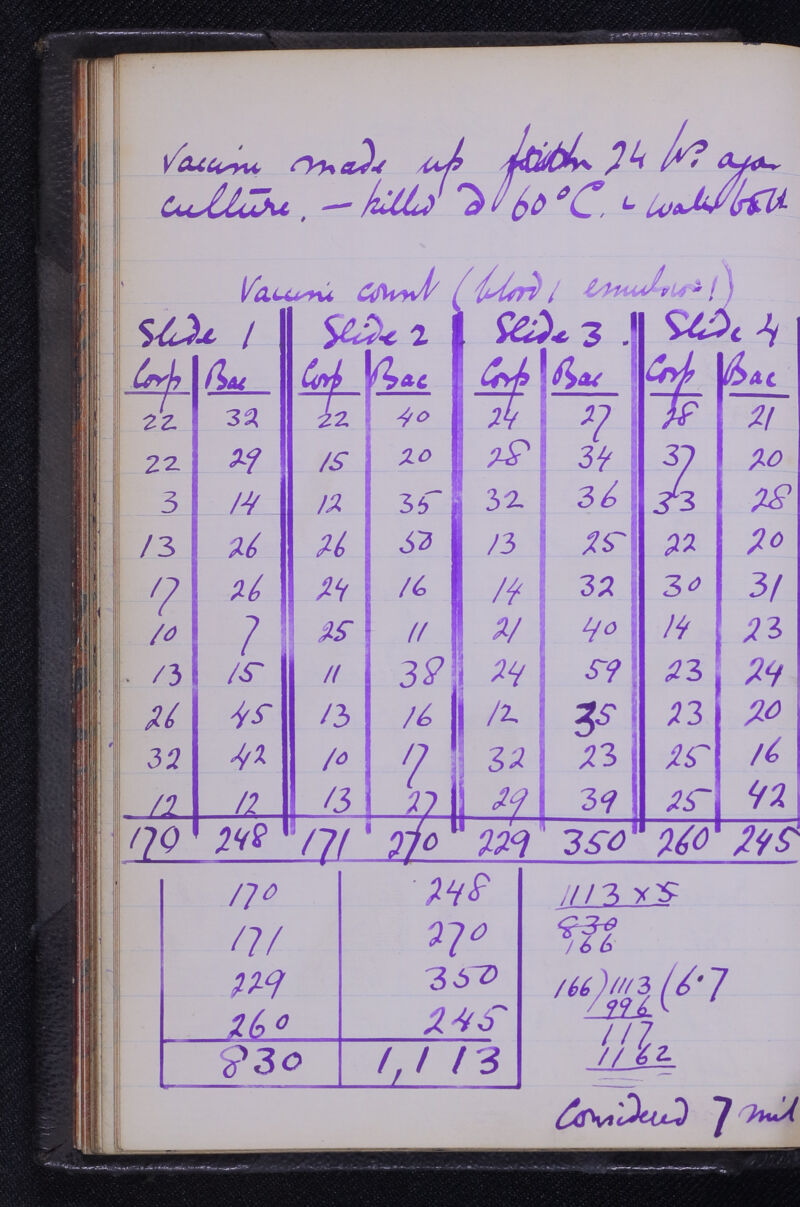 Vaccine made up 24 hrs agar
culture. — killed @ 60°C. water bath
Vaccine count (blood 1 emulsion 1)
Slide 1 Slide 2 Slide 3 Slide 4
Corp Bac Corp Bac Corp Bac Corp Bac
22 32 22 40 24 27 28 21
22 29 15 20 28 34 37 20
3 14 12 35 32 36 33 28
13 26 26 50 13 25 22 20
17 26 24 16 14 32 30 31
10 7 25 11 21 40 14 23
13 15 11 38 24 59 23 24
26 45 13 16 12 35 23 20
32 42 10 17 32 23 25 16
12 12 13 27 29 39 25 42
170 248 171 270 229 350 260 245
170 248
171 270
229 350
260 245
830 1,113
1113 x 5
830
166
166)1113(6.7
996
117
1162
Considered 7 mil